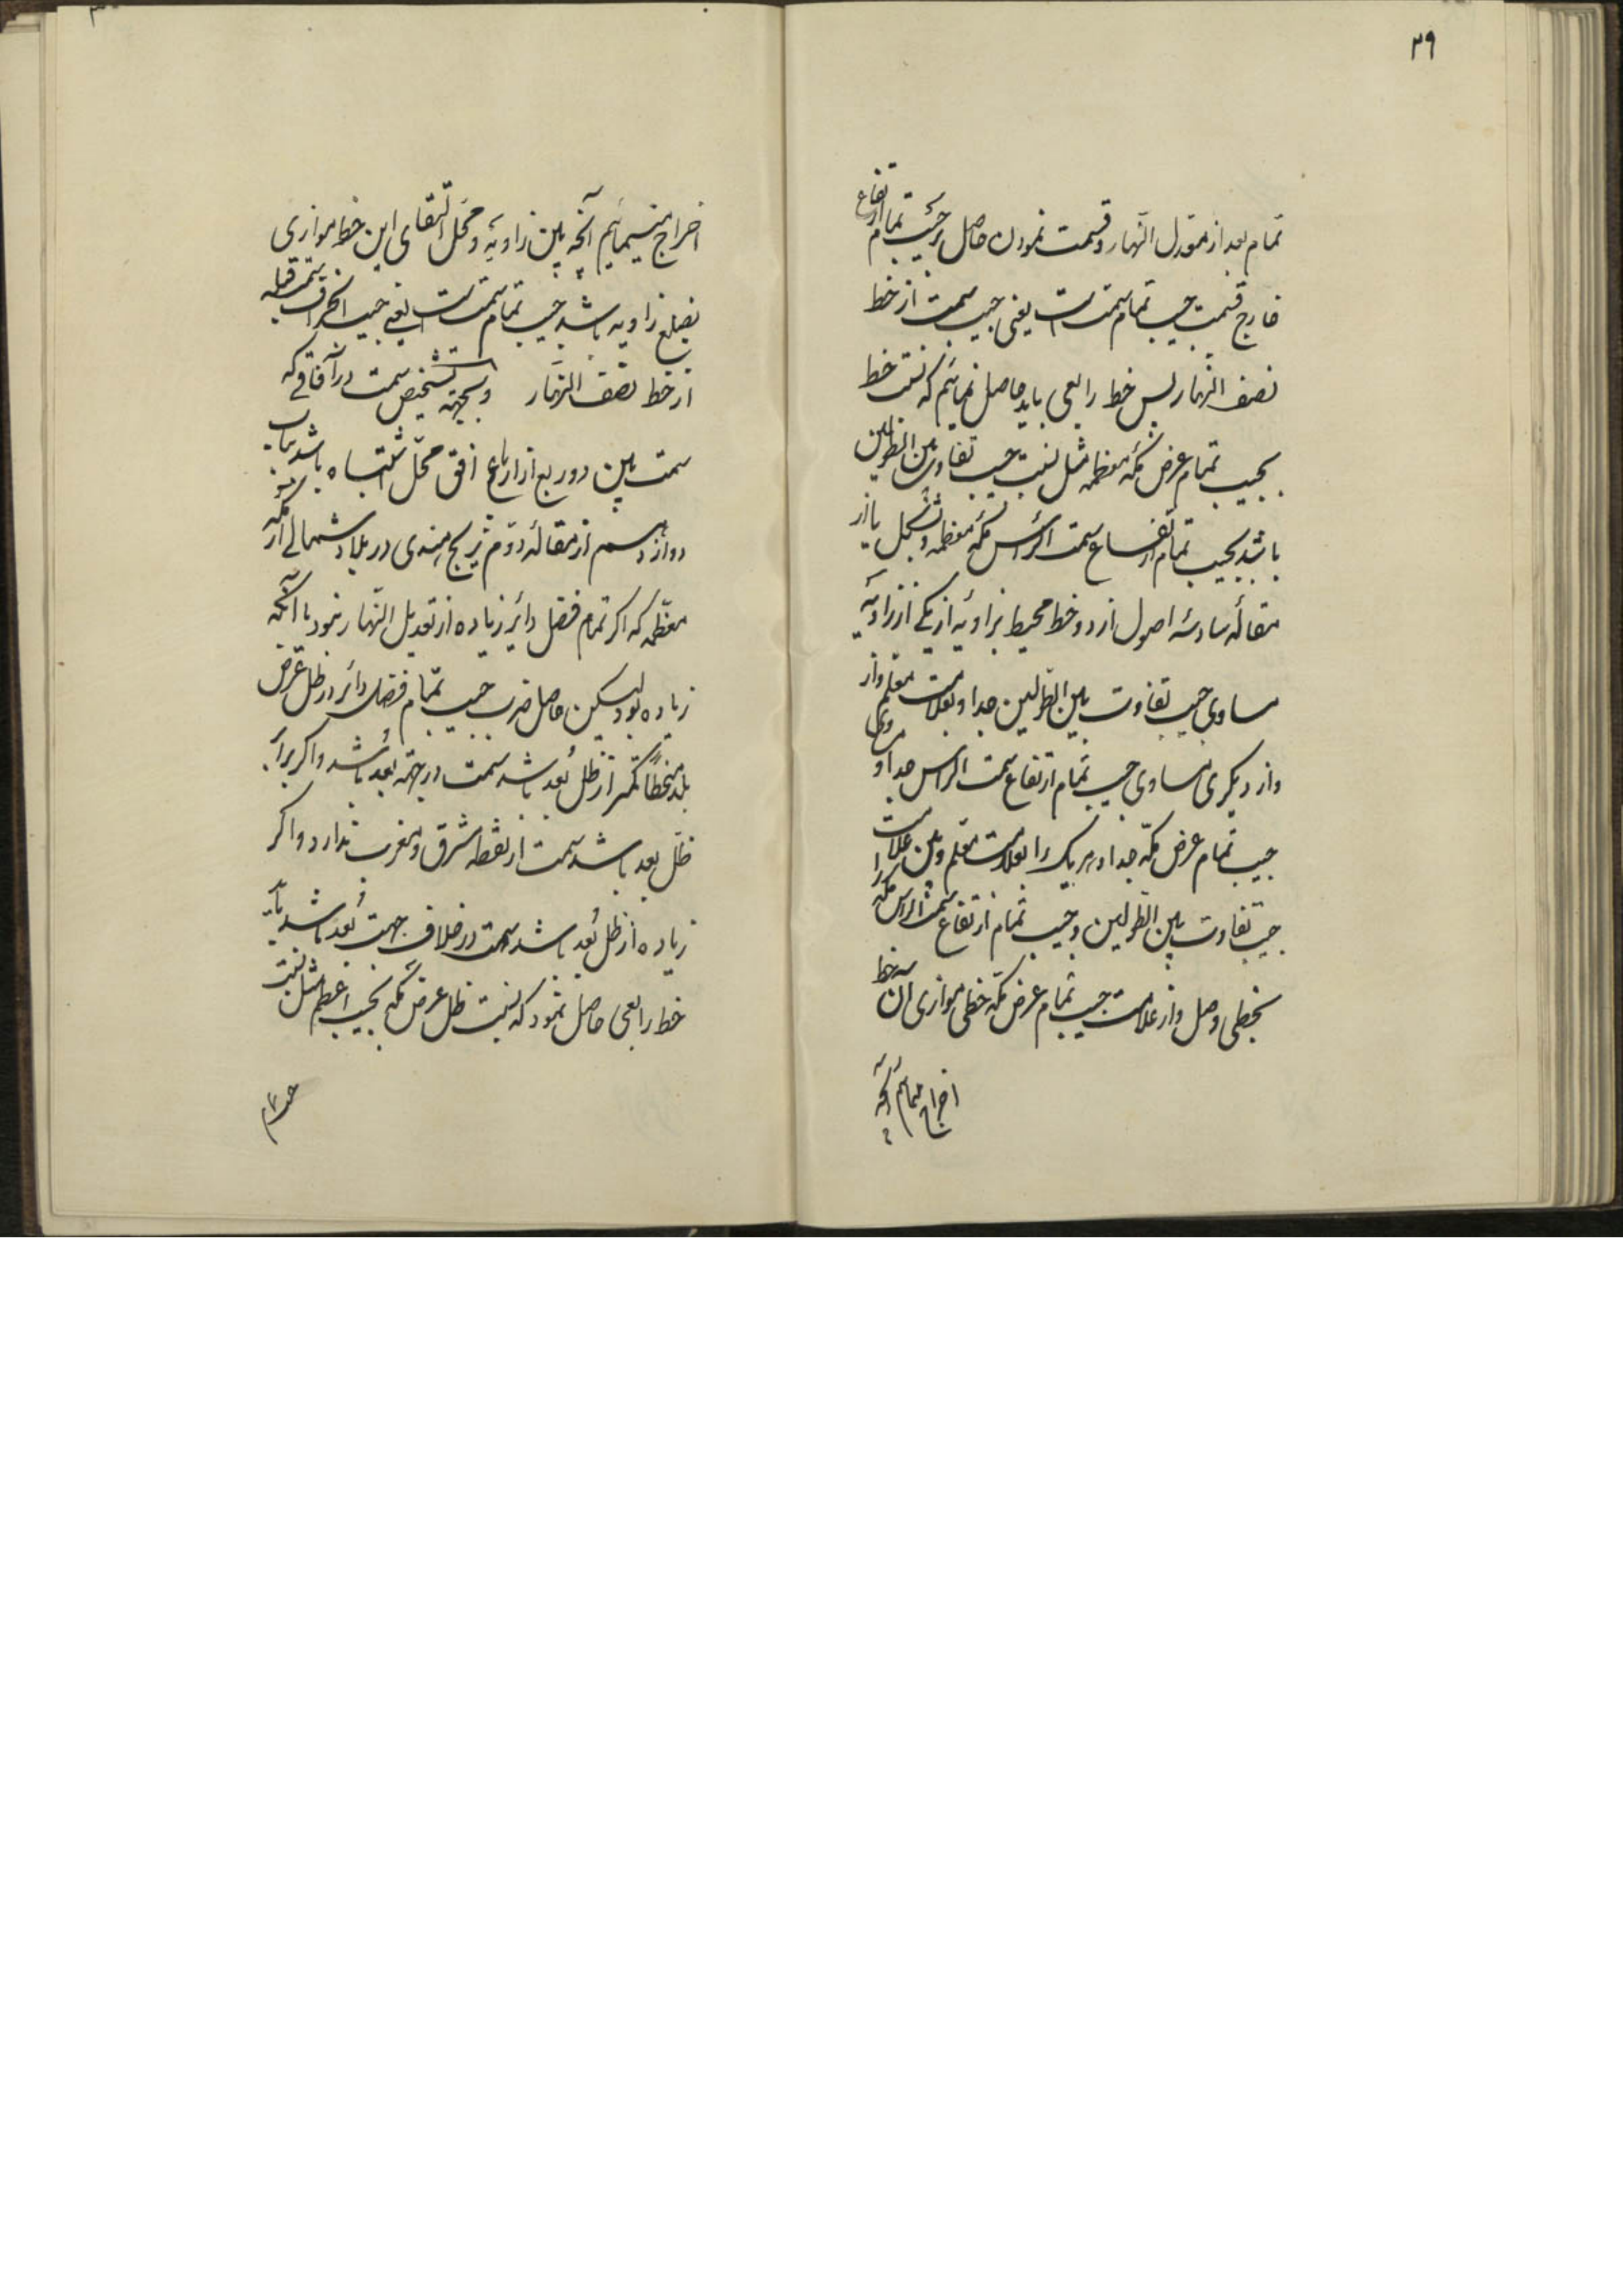 ۲۹
تمام بعد از معدل النهار و قسمت نمودن حاصل بر جیب تمام ارتفاع
خارج قسمت جیب تمام سمت است یعنی جیب سمت از خط
نصف النهار پس خط رابعی باید حاصل نمائیم که نسبت خط
بجیب تمام عرض مکه معظمه مثل نسبت جیب تفاوت بین الطولین
باشد بجیب تمام ارتفاع سمت الرأس مکه معظمه و بشکل یا از
مقاله سادسه اصول از دو خط محیط بزاویه از یکی از زاویه
مساوی جیب تفاوت بین الطولین جدا و بعلامت معلم و از
و از دیگری مساوی جیب تمام ارتفاع سمت الراس جدا و
جیب تمام عرض مکه جدا و هر یک را بعلامت معلم و بین علامت
جیب تفاوت بین الطولین و جیب تمام ارتفاع سمت الراس مکه را
بخطی وصل و از علامت جیب تمام عرض مکه خطی موازی آن خط
اخراج مینمائیم آنچه
اخراج مینمائیم آنچه بین زاویه و محل التقای این خط موازی
بضلع زاویه باشد جیب تمام سمت است یعنی جیب انحراف سمت قبله
از خط نصف النهار و بجهته تشخیص سمت در آفاقی که
سمت بین دو ربع از ارباع افق محل اشتباه باشد بباب
دوازدهم از مقاله دوم زیج هندی در بلاد شمالی از مکه
معظمه که اگر تمام فضل دائر زیاده از تعدیل النهار نبود یا آنکه
زیاده بود لیکن حاصل ضرب جیب تمام فضل دائر در ظل عرض
بلد منحطاً کمتر از ظل بعد باشد سمت در جهته بعد باشد و اگر برابر
ظل بعد باشد سمت از نقطه مشرق و مغرب ندارد و اگر
زیاده از ظل بعد باشد سمت در خلاف جهت بعد باشد باید
خط رابعی حاصل نمود که نسبت ظل عرض مکه بجیب اعظم مثل نسبت